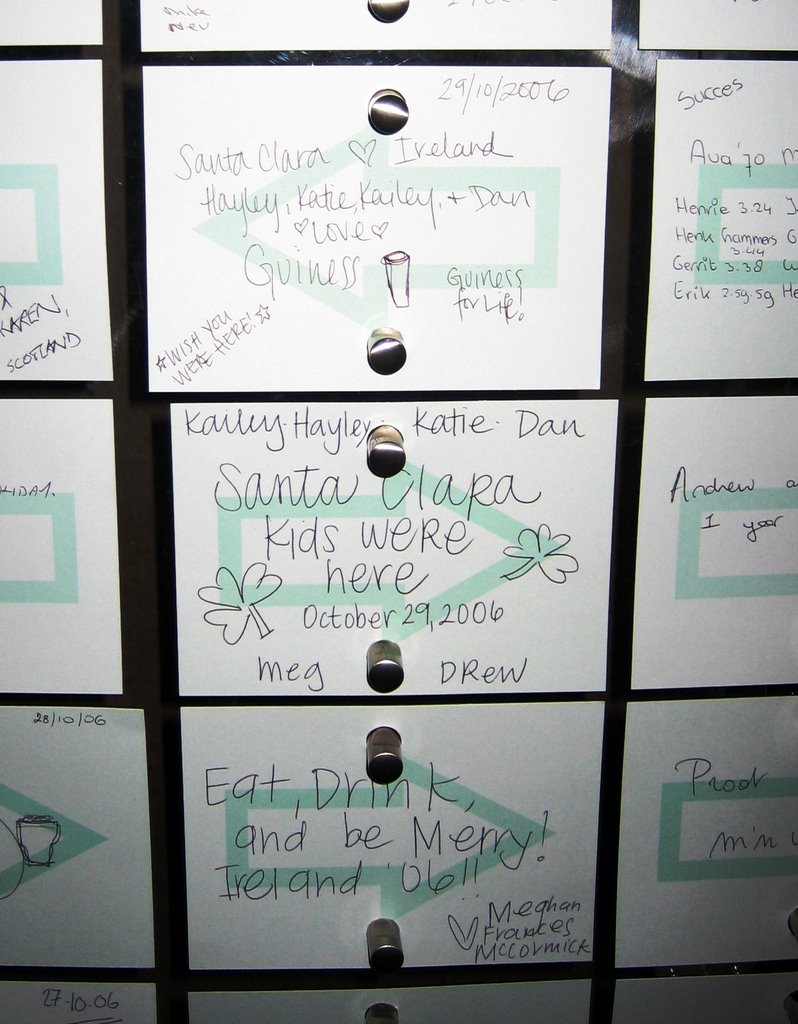 mike
29/10/2006
Santa Clara ♡ Ireland
Hayley, Katie, Kailey, + Dan
♡Love♡
Guiness
Guiness
for Life!
☆WISH YOU
WERE HERE!☆
KAREN,
SCOTLAND
Succes
Ava '70
Henrie 3.24
Henk hammers
3.44
Gerrit 3.38
Erik 2.59.59 He
Kailey· Hayley· Katie· Dan
Santa Clara
Kids were
here
October 29, 2006
meg DREW
Andrew a
1 year
28/10/06
Eat, Drink,
and be Merry!
Ireland '06!!
♡ Meghan
Frances
McCormick
Proot
27.10.06